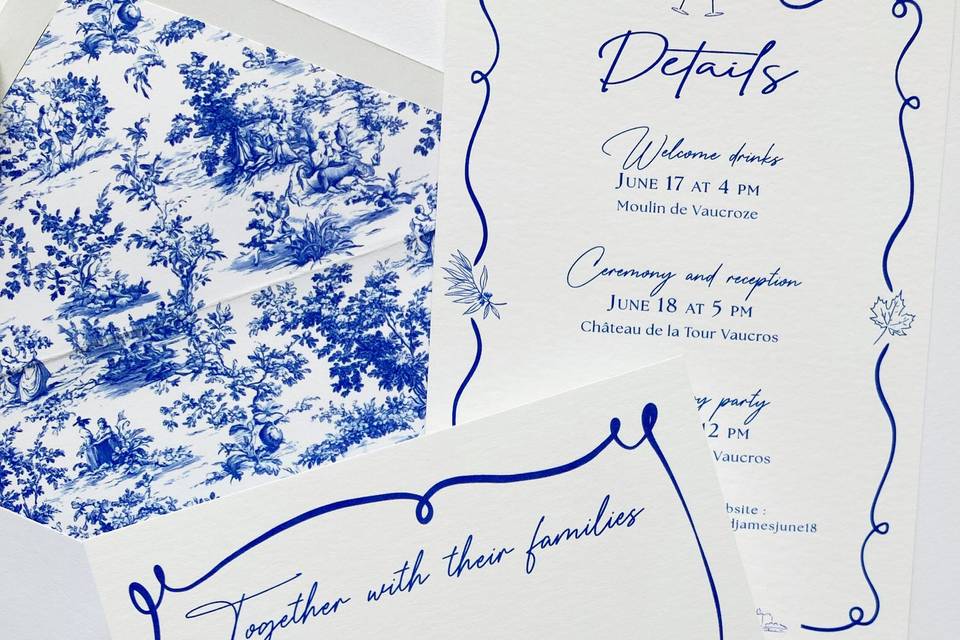 Details
Welcome drinks
JUNE 17 AT 4 PM
Moulin de Vaucroze
Ceremony and reception
JUNE 18 AT 5 PM
Château de la Tour Vaucros
party
12 PM
Vaucros
bsite :
djamesjune18
Together with their families